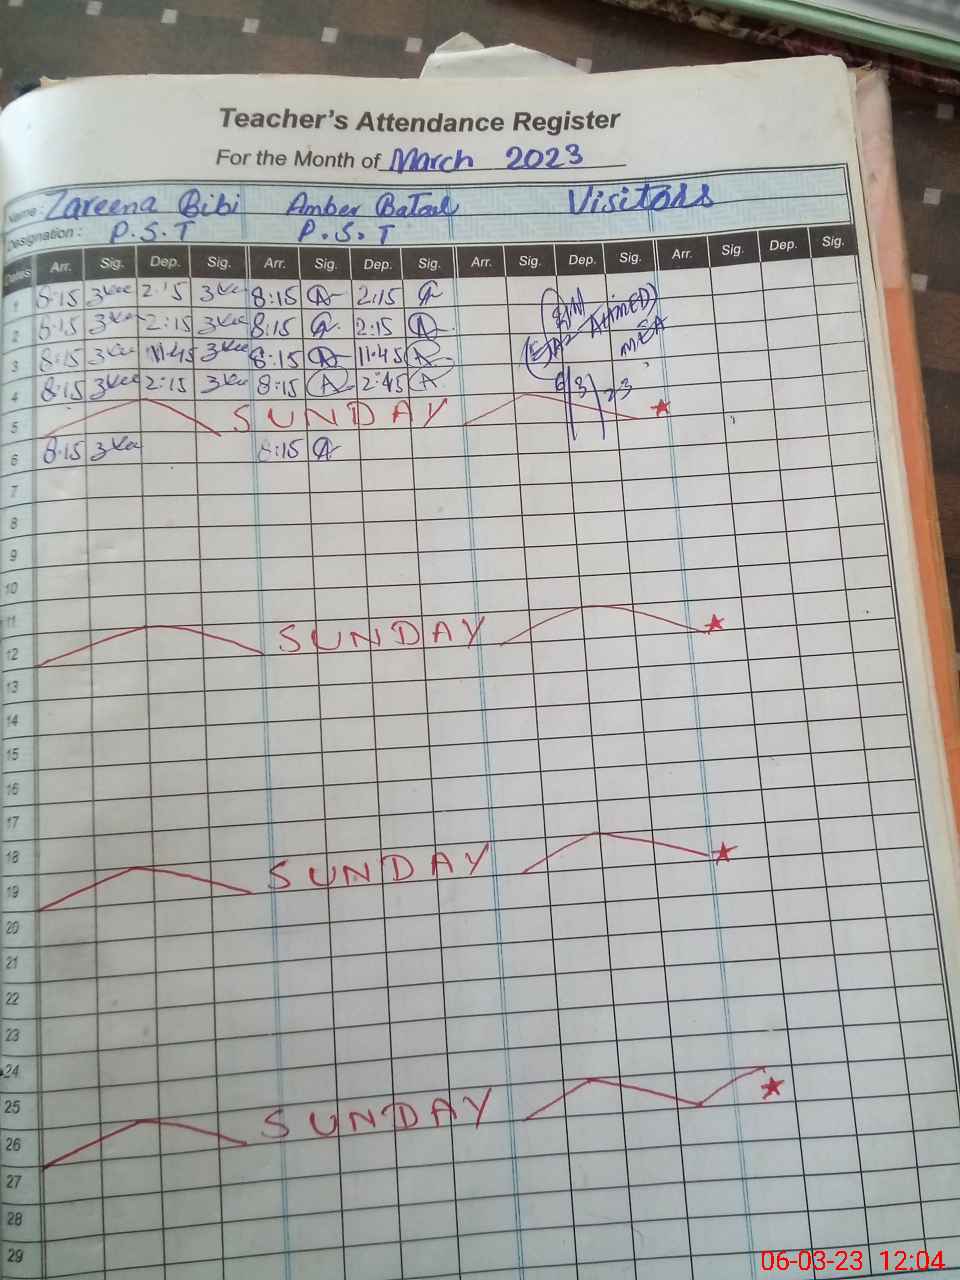 Teacher's Attendance Register
For the Month of March 2023
Name: Zareena Bibi Amber Batool Visitors
Designation: P.S.T P.S.T
Dates Arr. Sig. Dep. Sig. Arr. Sig. Dep. Sig. Arr. Sig. Dep. Sig. Arr. Sig. Dep. Sig.
1 8:15 2:15 8:15 2:15
2 8:15 2:15 8:15 2:15
(EJAZ AHMED)
3 8:15 11:45 8:15 11:45 MEA
4 8:15 2:15 8:15 2:45 6/3/23
5 SUNDAY
6 8:15 8:15
7
8
9
10
11
12 SUNDAY
13
14
15
16
17
18
19 SUNDAY
20
21
22
23
24
25
26 SUNDAY
27
28
29
06-03-23 12:04